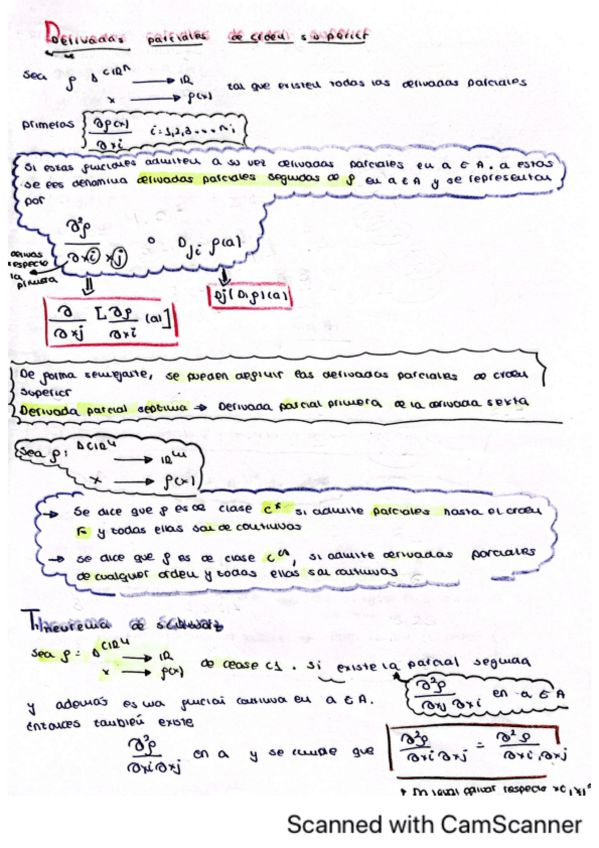 Derivadas parciales de orden superior
Sea f Δ⊂ℝⁿ → ℝ tal que existen todas las derivadas parciales
x → f(x)
primeras ∂f(x)/∂xi i=1,2,3....n;
Si estas funciones admiten a su vez derivadas parciales en a ∈ A. a estas
se les denomina derivadas parciales segundas de f en a ∈ A y se representan
por
∂²f/∂xi xj o Dji f(a)
derivas respecto la primera
∂/∂xj [∂f/∂xi (a)]
Dj(Dif)(a)
De forma semejante, se pueden definir las derivadas parciales de orden
superior
Derivada parcial septima → Derivada parcial primera de la derivada sexta
Sea f: Δ⊂ℝⁿ → ℝᵐ
x → f(x)
→ Se dice que f es de clase cᴷ si admite parciales hasta el orden
K y todas ellas son de continuas
→ se dice que f es de clase c^∞, si admite derivadas parciales
de cualquier orden y todas ellas son continuas
Theorema de Schwarz
Sea f = Δ⊂ℝⁿ → ℝ de clase c1. Si existe la parcial segunda
x → f(x)
∂²f/∂xj ∂xi en a ∈ A
y además es una función continua en a ∈ A.
Entonces también existe
∂²f/∂xi∂xj en a y se cumple que ∂²f/∂xi ∂xj = ∂²f/∂xi,∂xj
igual derivar respecto
Scanned with CamScanner